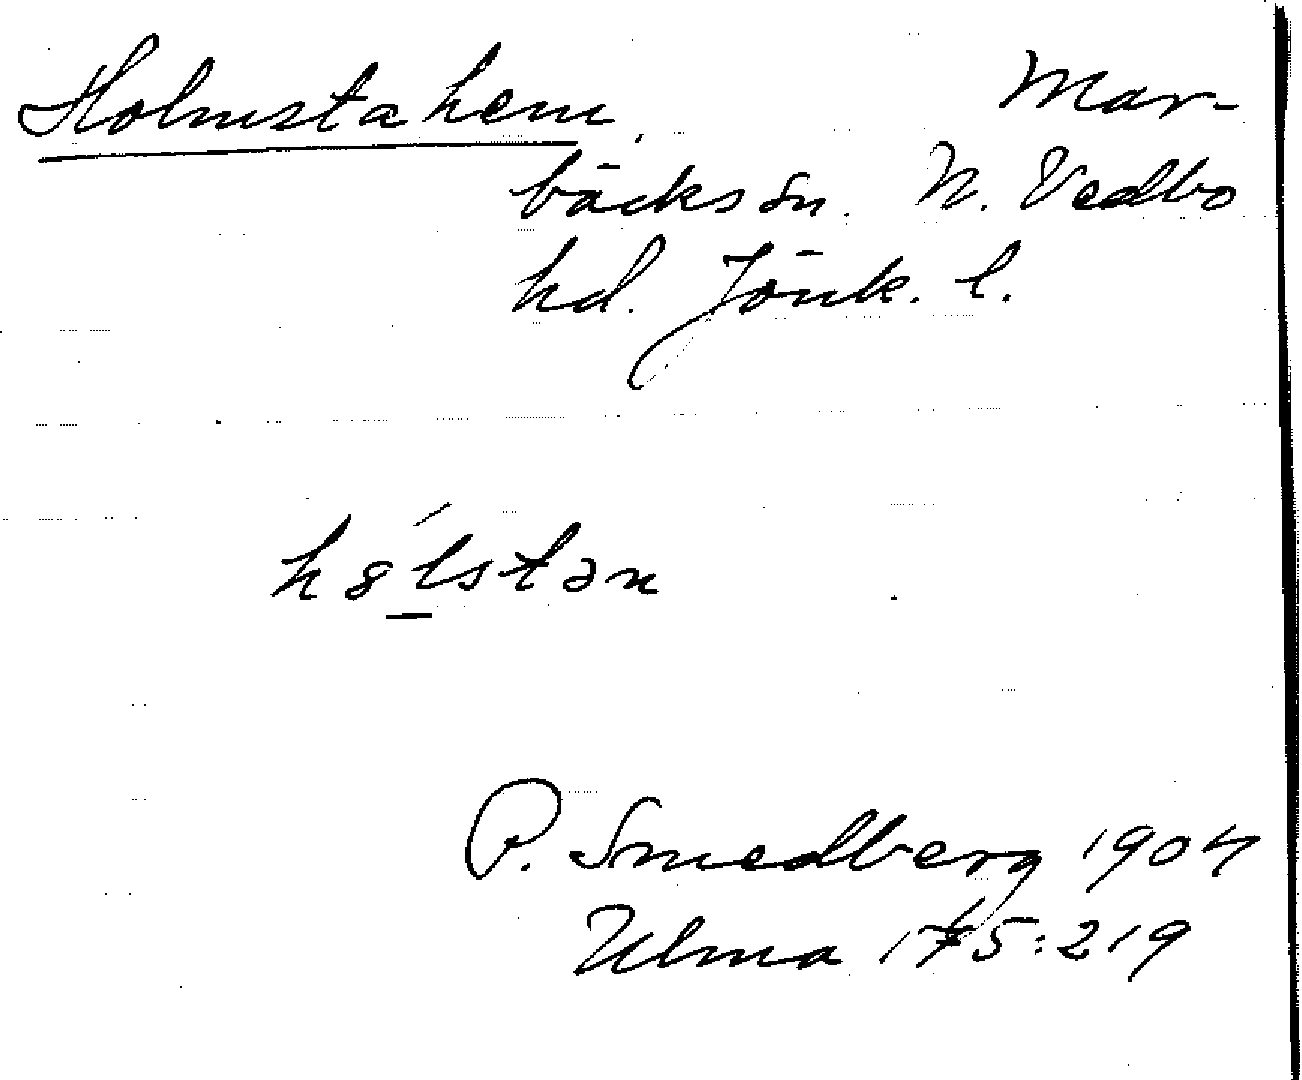 Holmstahem, Mar-
bäcks sn. N. Vedbo
hd. Jönk. l.
hålstən
P. Smedberg 1904
Ulma 175:219